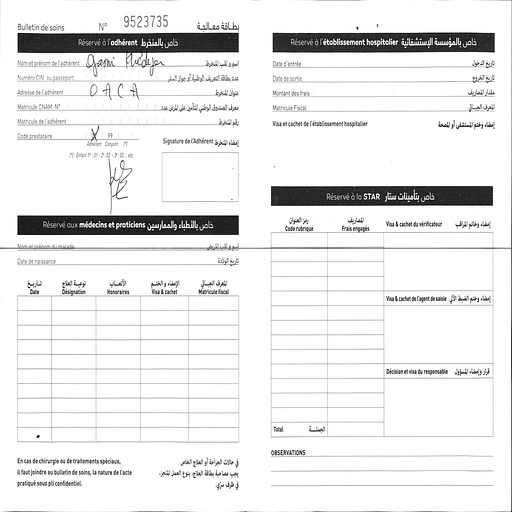 Bulletin de soins N° 9523735 بطاقة معالجة
Réservé à l'adhérent خاص بالمنخرط
Nom et prénom de l'adhérent إسم و لقب المنخرط
Numéro CIN ou passeport عدد بطاقة التعريف الوطنية أو جواز السفر
Adresse de l'adhérent O A C A عنوان المنخرط
Matricule CNAM N° معرف الصندوق الوطني للتأمين على المرض عدد
Matricule de l'adhérent رقم المنخرط
Code prestataire X 99
Adhérent Conjoint (*)
(*) Enfant 1er : 01 - 2è : 02 - 3è : 03 ... etc
Signature de l'Adhérent إمضاء المنخرط
Réservé aux médecins et praticiens خاص بالأطباء والممارسين
Nom et prénom du malade إسم و لقب المريض
Date de naissance تاريخ الولادة
تاريخ نوعية العلاج الأتعاب الإمضاء و الختم المعرف الجبائي
Date Désignation Honoraires Visa & cachet Matricule fiscal
En cas de chirurgie ou de traitements spéciaux,
il faut joindre au bulletin de soins, la nature de l'acte
pratiqué sous pli confidentiel.
في حالات الجراحة أو العلاج الخاص
يجب مصاحبة بطاقة العلاج، بنوع العمل المنجز،
في ظرف سري.
Réservé à l'établissement hospitalier خاص بالمؤسسة الإستشفائية
Date d'entrée تاريخ الدخول
Date de sortie تاريخ الخروج
Montant des frais مقدار المصاريف
Matricule Fiscal المعرف الجبائي
Visa et cachet de l'établissement hospitalier إمضاء وختم المستشفى أو المصحة
Réservé à la STAR خاص بتأمينات ستار
رمز العنوان المصاريف
Code rubrique Frais engagés
Visa & cachet du vérificateur إمضاء وخاتم المراقب
Visa & cachet de l'agent de saisie إمضاء وختم الضبط الآلي
Décision et visa du responsable قرار وإمضاء المسؤول
Total الجملة
OBSERVATIONS